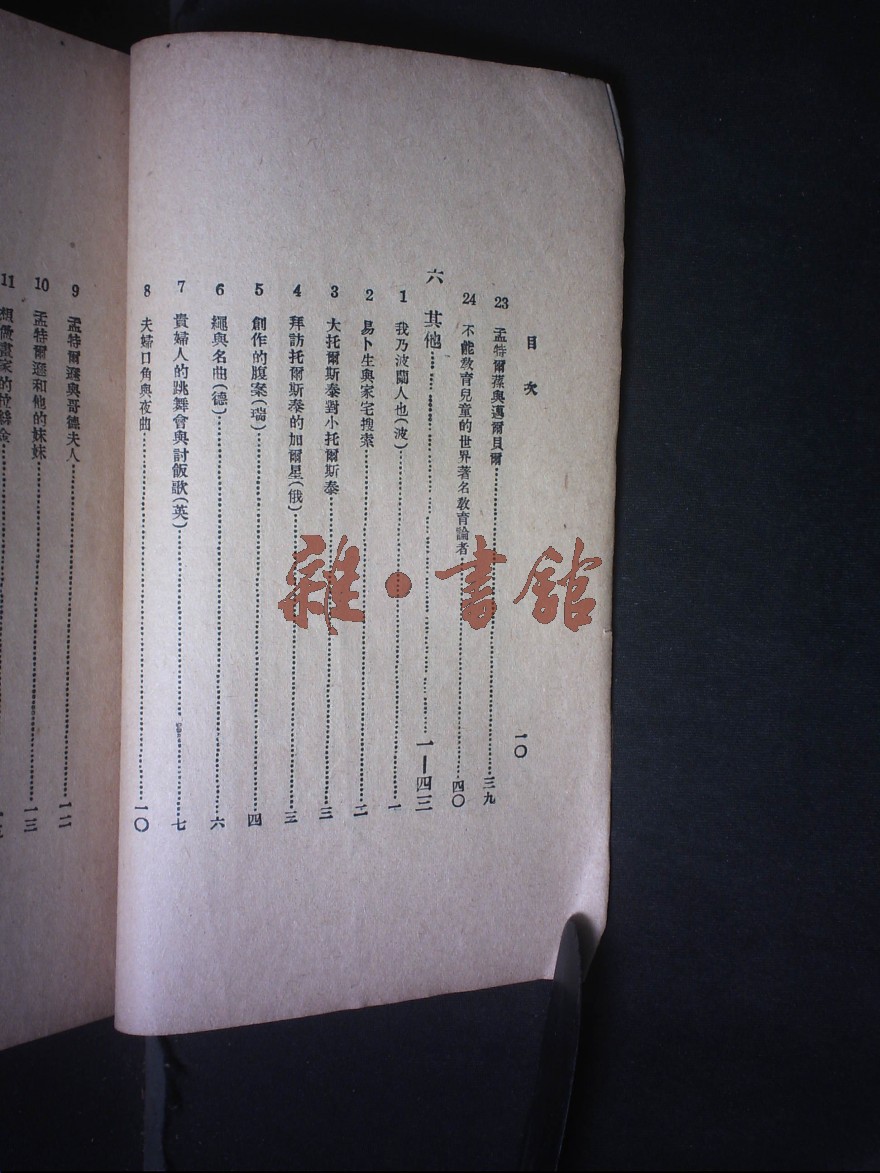 目次
一〇
23 孟特爾遜與邁爾貝爾……三九
24 不能教育兒童的世界著名教育論者……四〇
六 其他……一—四三
1 我乃波蘭人也(波)……一
2 易卜生與家宅搜索……二
3 大托爾斯泰對小托爾斯泰……三
4 拜訪托爾斯泰的加爾星(俄)……三
5 創作的腹案(瑞)……四
6 繩與名曲(德)……六
7 貴婦人的跳舞會與討飯歌(英)……七
8 夫婦口角與夜曲……一〇
9 孟特爾遜與哥德夫人……一二
10 孟特爾遜和他的妹妹……一三
11 想做畫家的
雜·書館